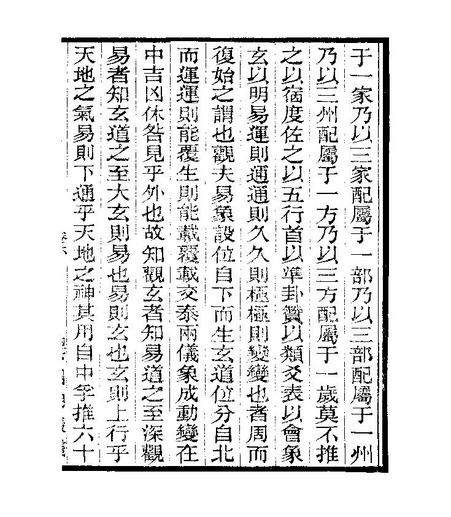 于一家乃以三家配屬于一部乃以三部配屬于一州
乃以三州配屬于一方乃以三方配屬于一歲莫不推
之以宿度佐之以五行首以準卦贊以類爻表以會象
玄以明易運則通通則久久則極極則變變也者周而
復始之謂也觀夫易象設位自下而生玄道位分自北
而運運則能覆生則能載覆載交泰兩儀象成動變在
中吉凶休咎見乎外也故知觀玄者知易道之至深觀
易者知玄道之至大玄則易也易則玄也玄則上行乎
天地之氣易則下通乎天地之神其用自中孚推六十